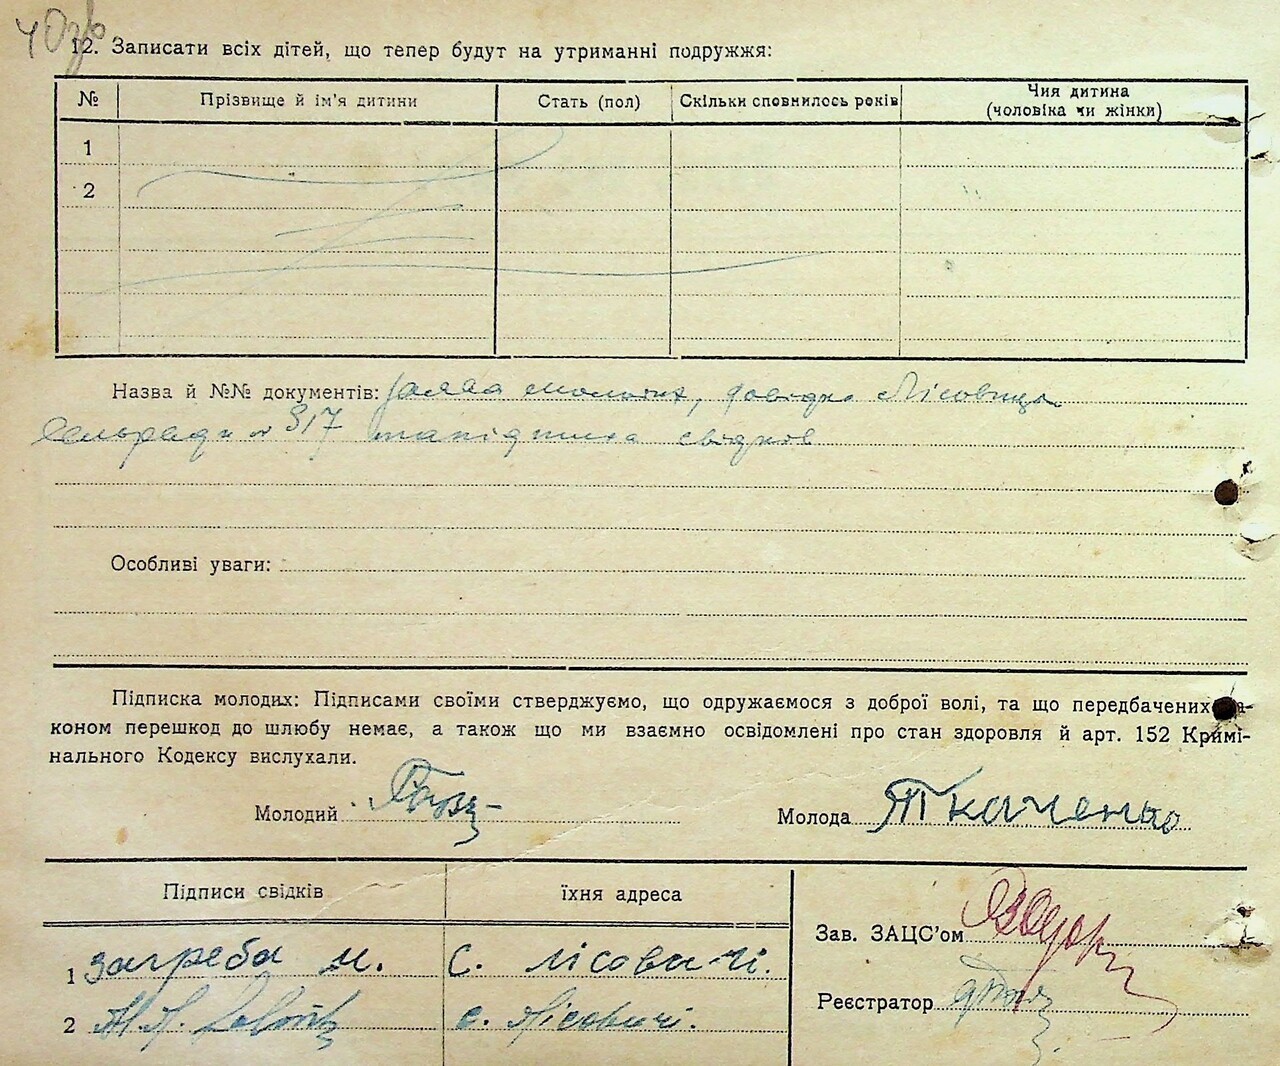 40зв
12. Записати всіх дітей, що тепер будут на утриманні подружжя:
№ Прізвище й ім'я дитини Стать (пол) Скільки сповнилось років Чия дитина
(чоловіка чи жінки)
1
2
Назва й №№ документів: заява молодих, довідка Лісовиць.
Сельради № 317 та підписка свідків
Особливі уваги:
Підписка молодих: Підписами своїми стверджуємо, що одружаємося з доброї волі, та що передбачених
коном перешкод до шлюбу немає, а також що ми взаємно освідомлені про стан здоровля й арт. 152 Кримі-
нального Кодексу вислухали.
Молодий Молода Ткаченко
Підписи свідків їхня адреса
Зав. ЗАЦС'ом
1 Загреба М. С. Лісовичі.
Реєстратор
2 с. Лісовичі.